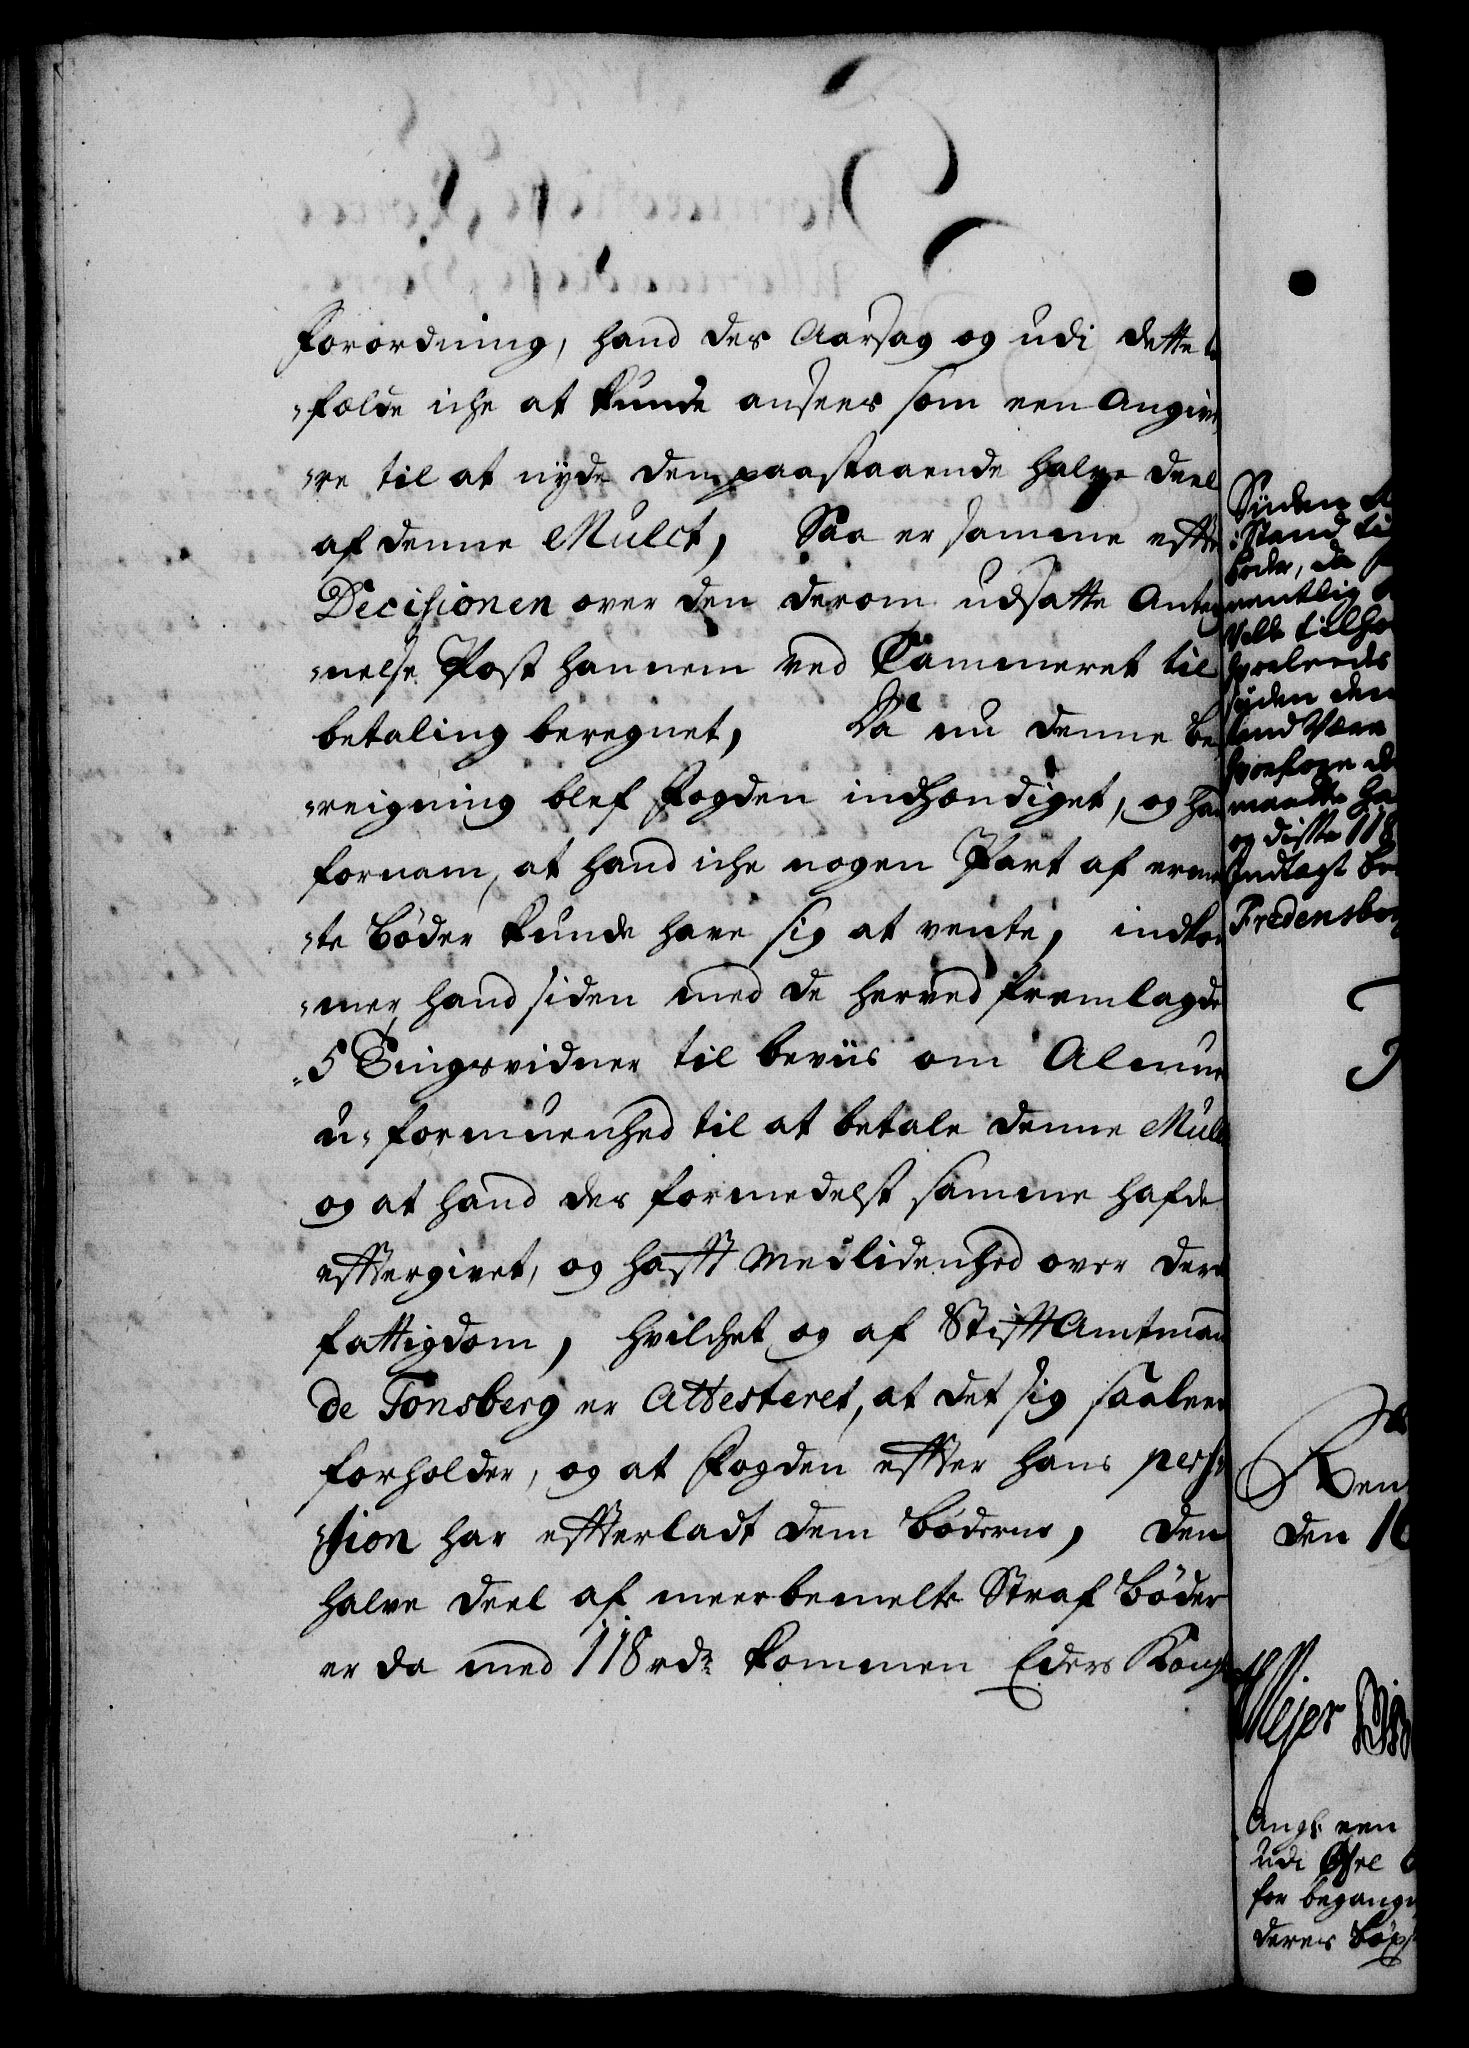 Forordning, hand der Aarsag og udi dette
"fælde iche at kunde ansees som een Angive
"re til at nyde den paastaaende halve deel
af denne Mulct, Saa er samme effter
Decisionen over den derom udsatte Anteg
"nelse Post hannem ved Cammeret til
betaling beregnet, Da nu denne be
"reigning blef Fogden indhændiget, og hand
fornam, at hand iche nogen Part af ermel
"te Bøder kunde have sig at vente, indkom
"mer hand siden med de herved fremlagde
"5 Tingsvidner til beviis om Almue
u-formuenhed til at betale denne Mulct
og at hand der formedelst samme hafde
efftergivet, og hafft Medlidenhed over dere
fattigdom, hvilchet og af Stifft Amtmand
de Tonsberg er Attesteret, at det sig saalee
forholder, og at Fogden effter hans permi
"ssion har effterladt dem Bøderne, den
halve deel af meerbemelte Straf Bøder
er da med 118 rdr kommen Eders Kongl
Siiden
i Stand til
Bøder, da
ventlig
Velde tilho
hvorleedes
siiden den
hand Være
hvorfore d
maatte ha
og disse 118
Indtægt
Fredensborg
Ren
den 16
Wejer
Angl: een
udi Øre
for begange
deres